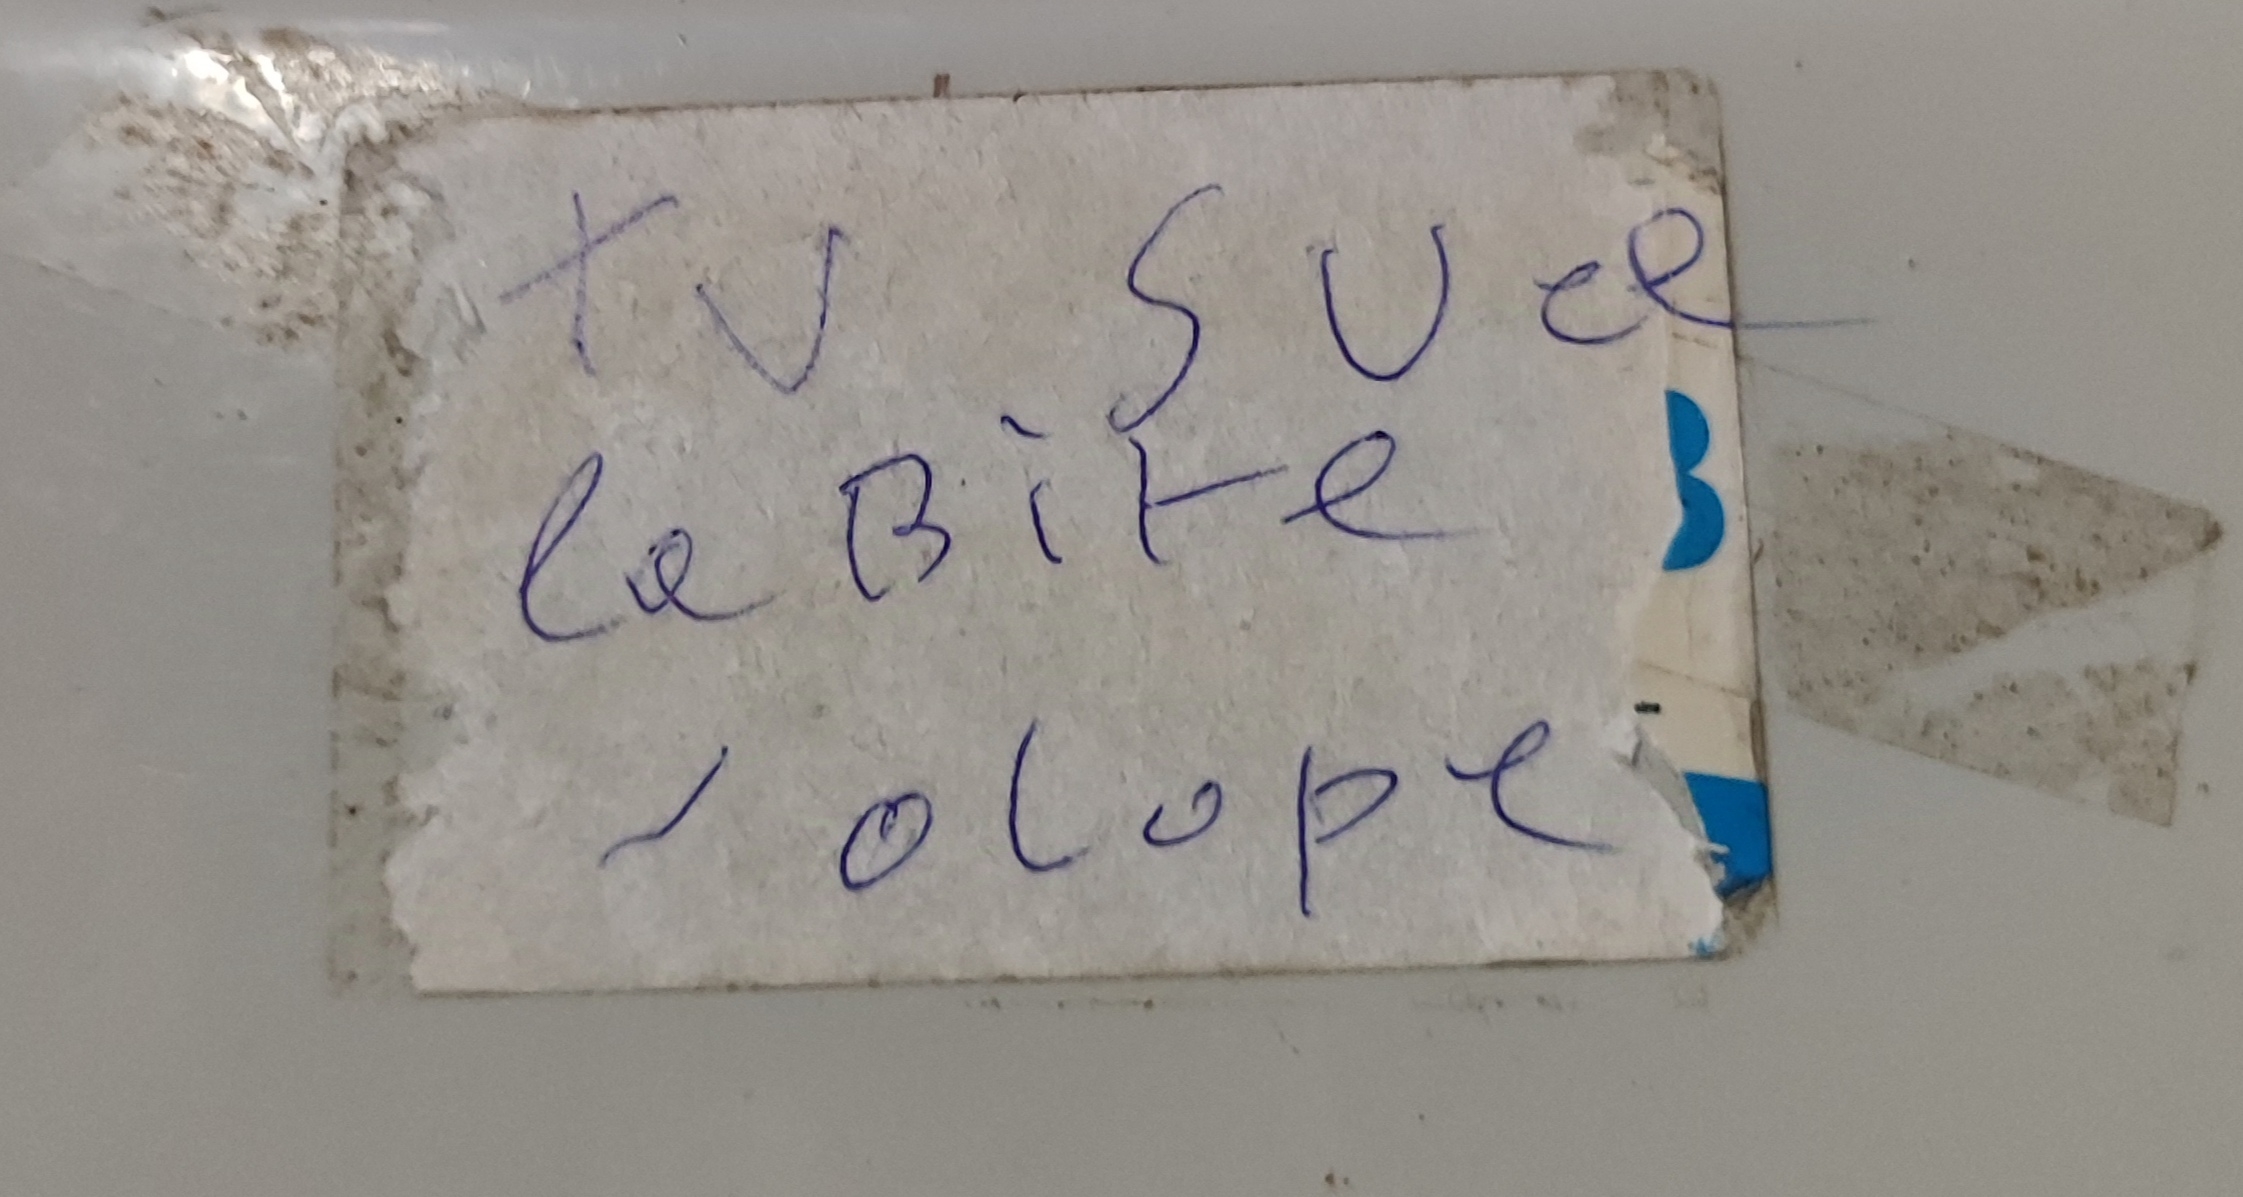 tu suce
la Bite
salope
B